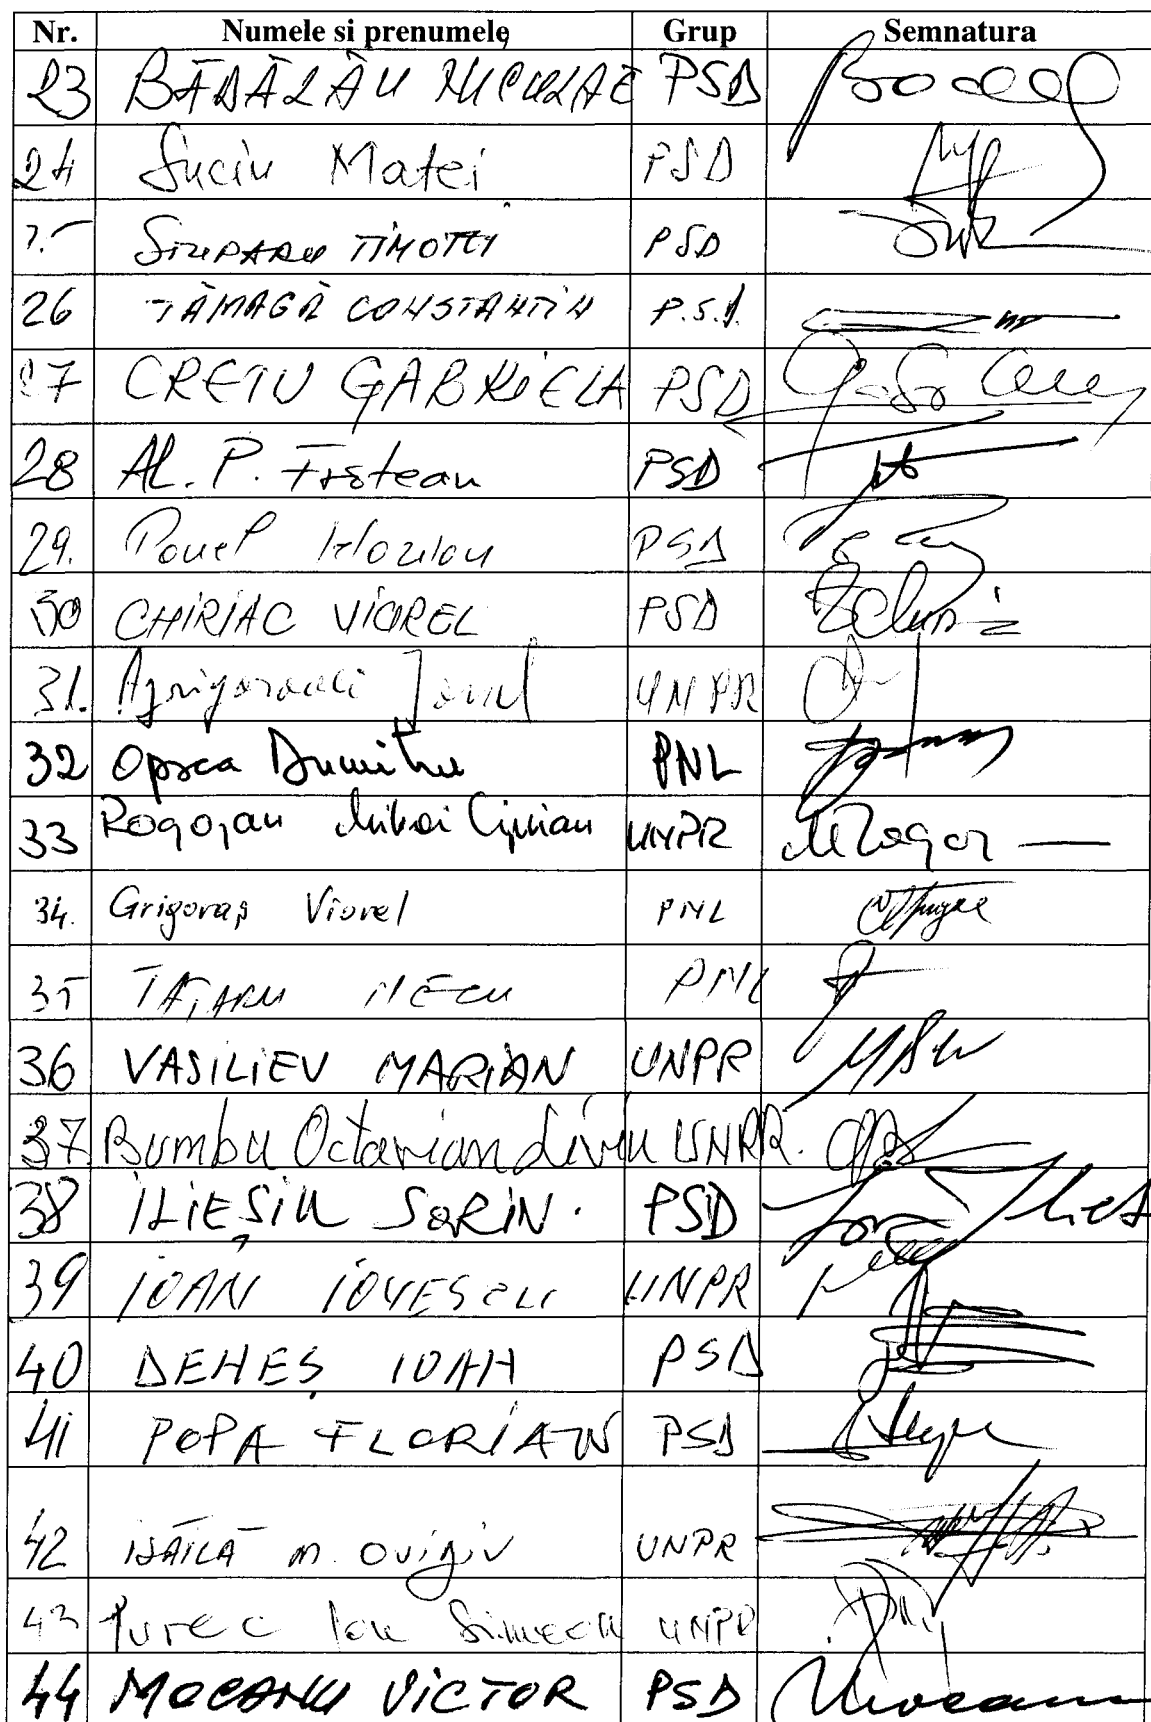 Nr. Numele si prenumele Grup Semnatura
23 BĂDĂLĂU NICULAE PSD
24 Suciu Matei PSD
STUPARU TIMOTEI PSD
26 TĂMAGĂ CONSTANTIN P.S.D.
27 CRETU GABRIELA PSD
28 Al. P. Frătean PSD
29. PSD
30 CHIRIAC VIOREL PSD
31. Agrigoroaei Ionel UNPR
32 Oprea Dumitru PNL
33 Rogojan Mihai Ciprian UNPR
34. Grigoraş Viorel PNL
35 TĂTARU NECU PNL
36 VASILIEV MARIAN UNPR
37. Bumbu Octavian Liviu UNPR.
38 ILIEŞIU SORIN. PSD
39 IOAN IOVESCU UNPR
40 DENEŞ IOAN PSD
41 POPA FLORIAN PSD
42 ISĂILĂ M. OVIDIU UNPR
43 Purec Ion Simeon UNPR
44 MOCANU VICTOR PSD Mocanu